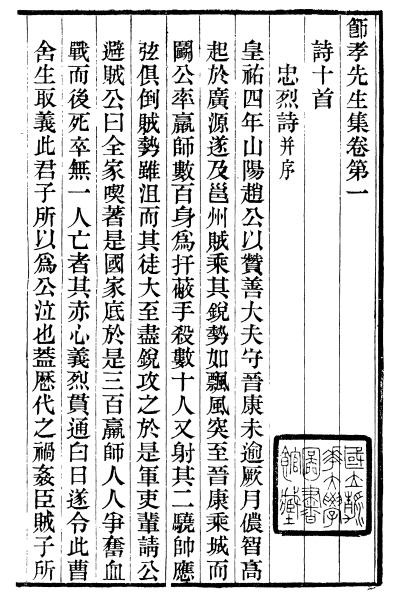 節孝先生集卷第一
詩十首
忠烈詩并序
皇祐四年山陽趙公以贊善大夫守晉康未逾厥月儂智高
起於廣源遂及邕州賊乘其銳勢如飄風突至晉康乘城而
鬭公率羸師數百身爲扞蔽手殺數十人又射其二驍帥應
弦俱倒賊勢雖沮而其徒大至盡銳攻之於是軍吏輩請公
避賊公曰全家喫著是國家底於是三百羸師人人爭奮血
戰而後死卒無一人亡者其赤心義烈貫通白日遂令此曹
舍生取義此君子所以爲公泣也蓋歷代之禍姦臣賊子所